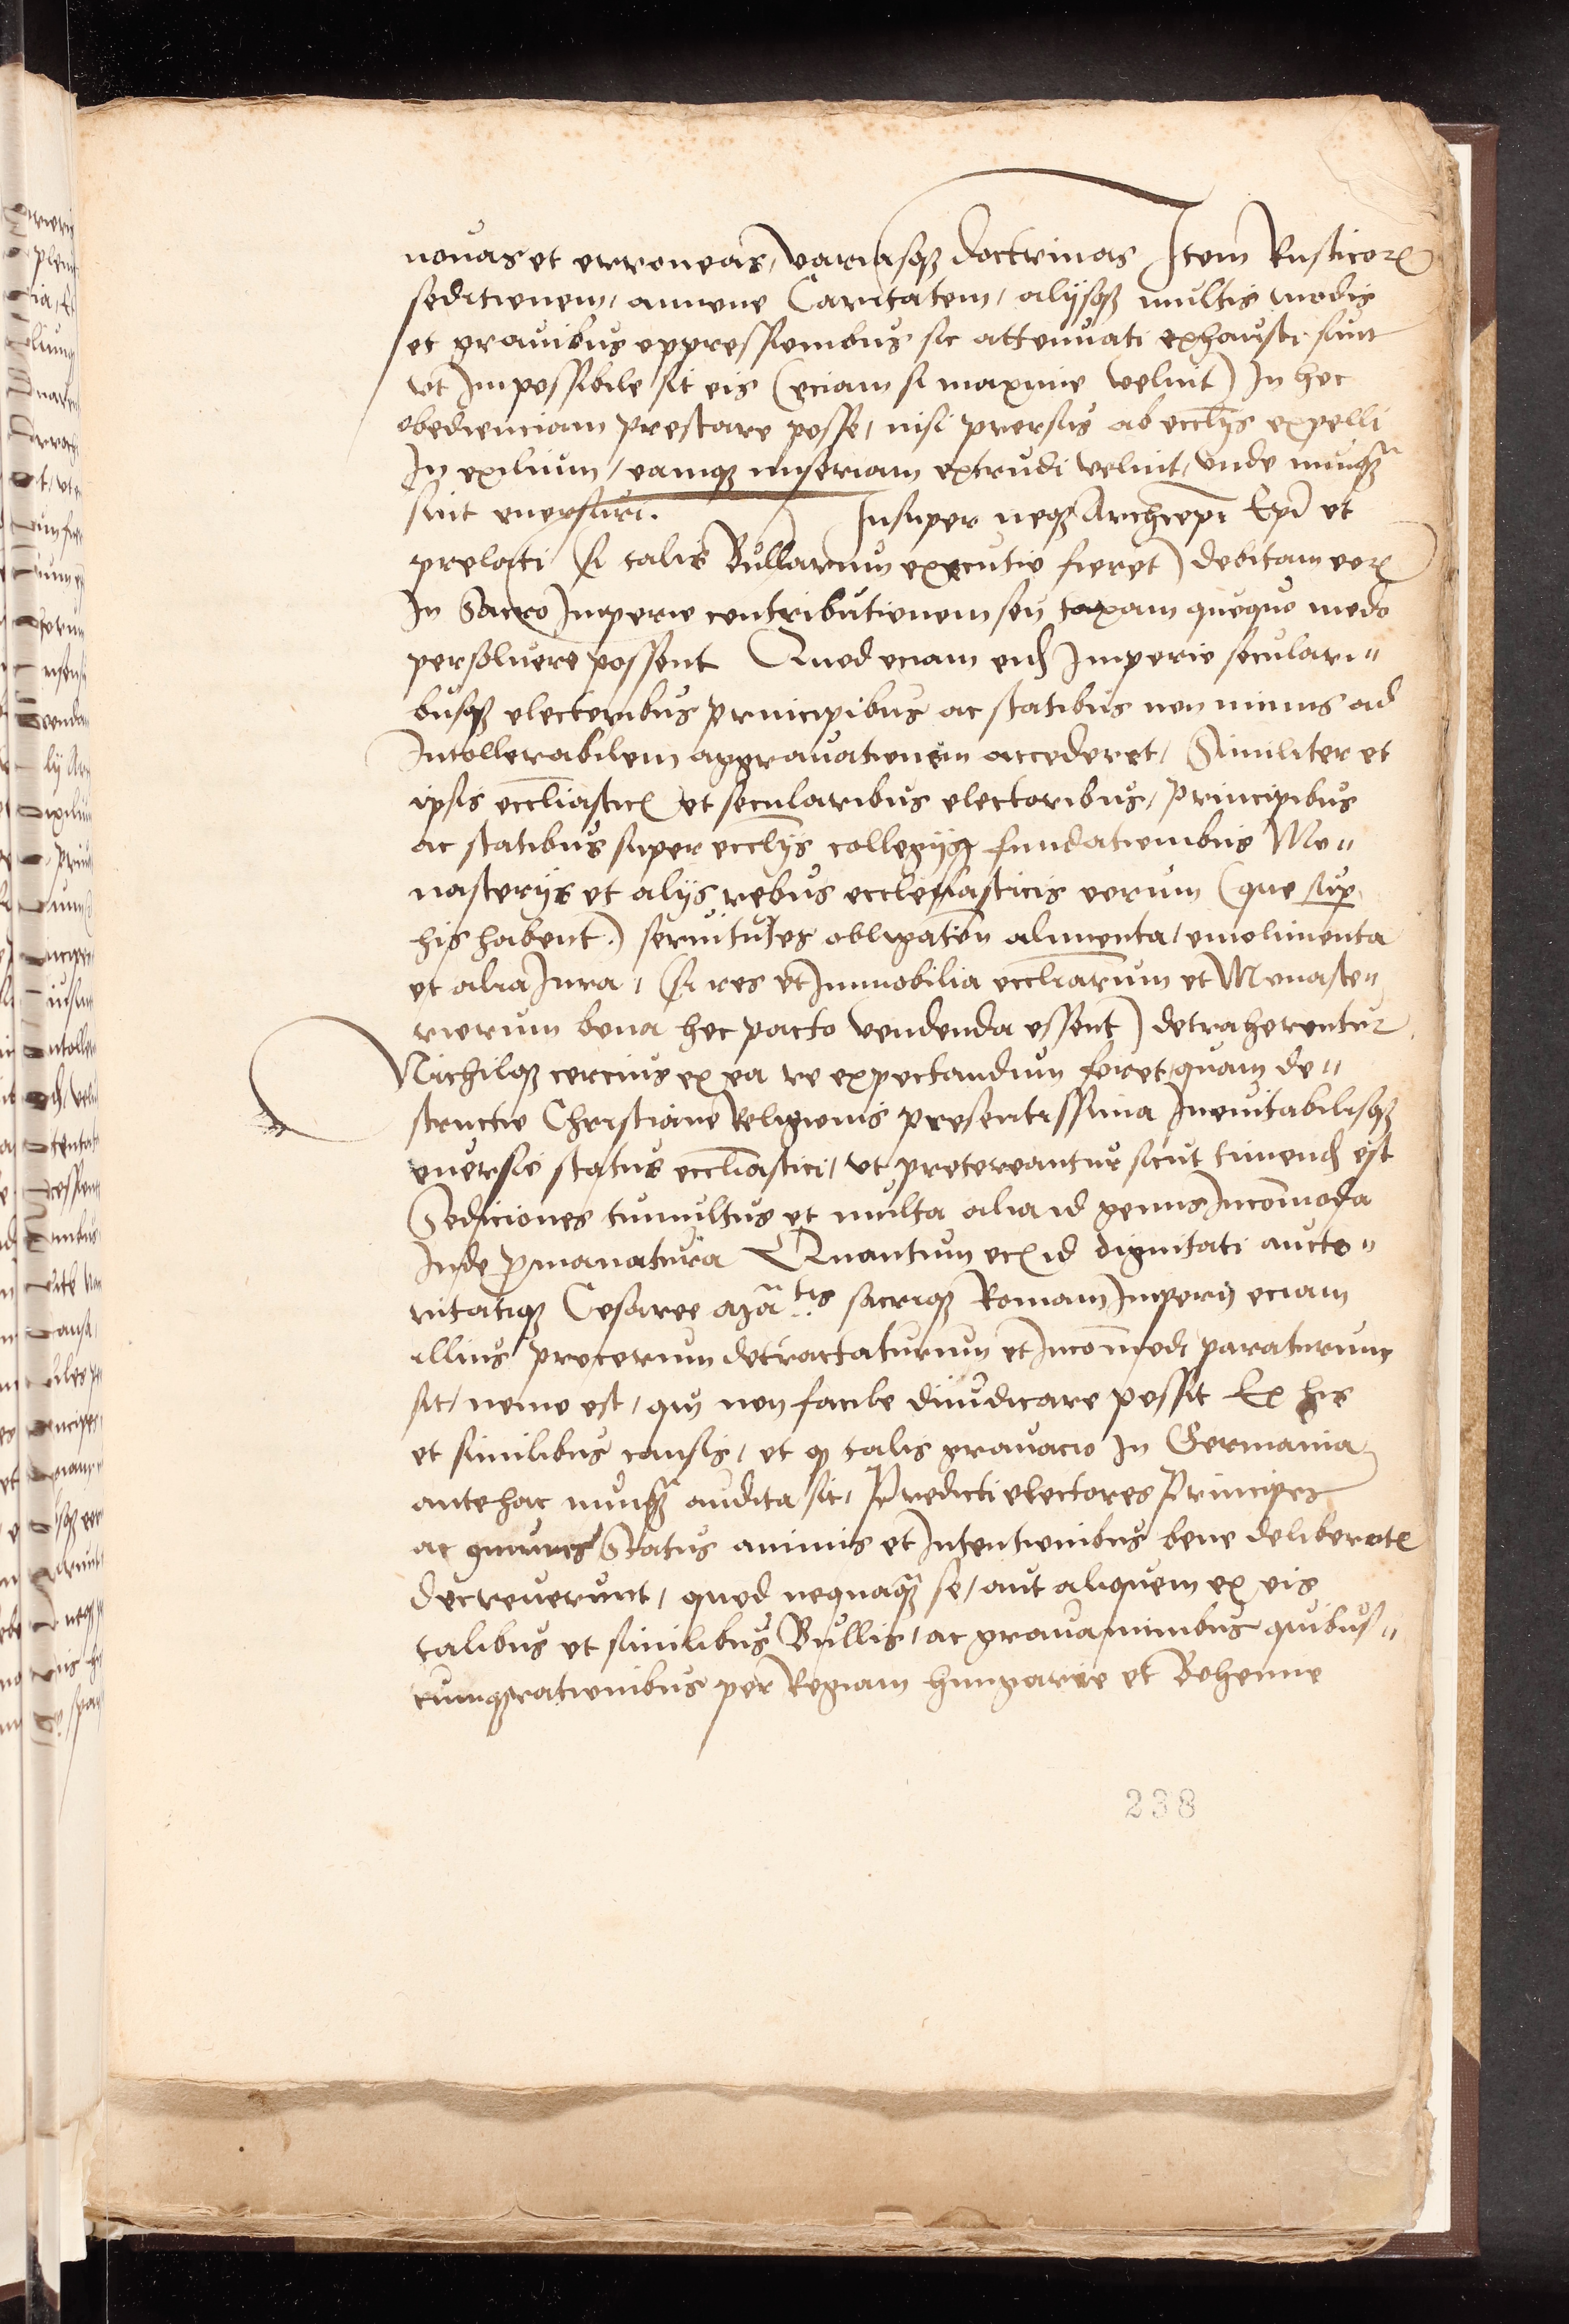 nouas et erroneas, variasqꝫ doctrinas Item Rusticorꝫ
seditionem, annone Caritatem, alijsqꝫ multis modis
et grauibus oppressionibus sic attenuati exhausti sunt
vt Impossibile sit eis (eciam si maxime velint) In hoc
obedienciam prestare posse, nisi prorsus ab eccl͞ijs expelli
In exilium, eamqꝫ miseriam extrudi velint, vnde nunqꝫ̄
sint euersuri. Insuper neqꝫ Archiepi͞ Epi͞ et
prelati (si talis Bullarum executio fieret) debitam eorꝫ
In Sacro Imperio contributionem seu taxam quoquo modo
persoluere possent Quod eciam eid̄ Imperio seculari„
busqꝫ electoribus principibus ac statibus non minus ad
Intollerabilem aggrauationem accederet, Similiter et
ipsis eccl͞iasticꝭ et secularibus electoribus, principibus
ac statibus super eccl͞ijs collegijsqꝫ fundationibus Mo„
nasterijs et alijs rebus ecclesiasticis eorum (que sup̱
his habent.) seruitutes obligation̄ alimenta, emolimenta
et alia Iura, (si res et Immobilia eccl͞iarum et Monaste„
riorum bona hoc pacto vendenda essent) detraherentur
Nichilqꝫ cercius ex ea re expectandum foret, quam de„
structio Christiane Religionis presentissima Ineuitabilisqꝫ
euersio status eccl͞iastici, vt pretereantur sicut timend̄ est
Sediciones tumultus et multa alia id genus Incom̄oda
Inde p̱manatura Quantum ecꝫ id dignitati aucto„
ritatiqꝫ Cesaree Ma͞tis sacriqꝫ Romani Imperij eciam
illius procerum detractaturum et Incom̄odi paraturum
sit, nemo est, qui non facile diiudicare possit Ex his
et similibus causis, et qꝫ talis grauacio In Germania
antehac nunqꝫ̄ audita sit, Predicti electores Principes
ac omnes Status animis et Intentionibus bene deliberatꝭ
decreuerunt, quod nequaqꝫ̄ se, aut aliquem ex eis
talibus et similibus Bullis, ac grauaminibus quibus„
cumqꝫ rationibus per Regiam hungarie et Bohemie
238